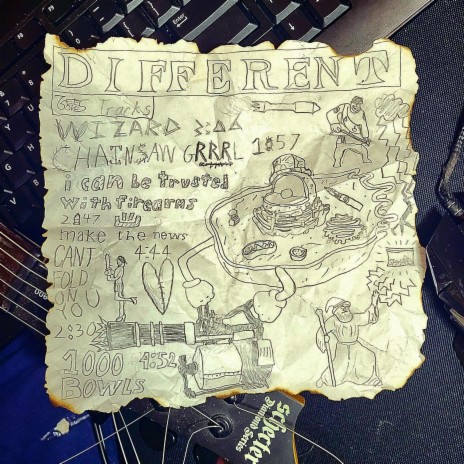 DIFFERENT
Tracks
WIZARD
CHAINSAW GRRRL 1:57
i can be trusted
with firearms
2:47
make the news
4:44
CANT
FOLD
ON U
YO
2:30
1000 4:52
BOWLS
schecter
Diamond Series
Enter